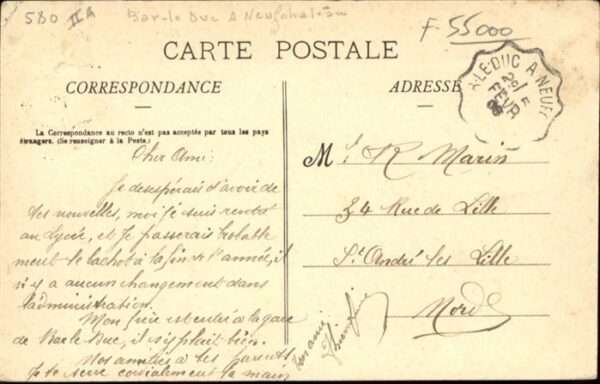 580 IIA
Bar-le Duc A Neufchateau
F-55000
CARTE POSTALE
CORRESPONDANCE
ADRESSE
-LE-DUC A NEUF
29
FEVR
La Correspondance au recto n'est pas acceptée par tous les pays
étrangers. (Se renseigner à la Poste.)
Cher Ami:
Je desespérais d'avoir de
tes nouvelles, moi je suis rentré
au lycée, et je passerais
ment le bachot à la fin de l'année, il
n'y a aucun changement dans
l'administration.
Mon frère est entré à la gare
de Bar le Duc, il s'y plait bien.
Nos amitiés à tes parents
Je te serre cordialement la main
Ton ami
Mr. R Marin
34 Rue de Lille
St André les Lille
Nord